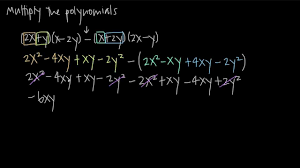 Multiply the polynomials
(2x+y)(x-2y) - (x+2y)(2x-y)
2x² - 4xy + xy - 2y² - (2x² - xy + 4xy - 2y²)
2x² - 4xy + xy - 2y² - 2x² + xy - 4xy + 2y²
- 6xy